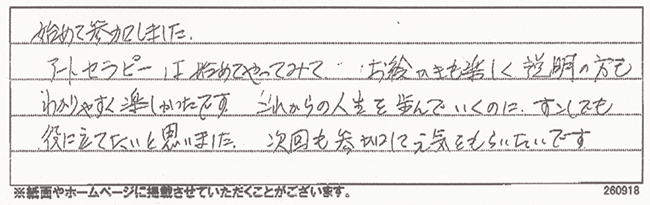 始めて参加しました。
アートセラピーは始めてやってみて お絵かきも楽しく 説明の方も
わかりやすく楽しかったです これからの人生を歩んでいくのに、すこしでも
役に立てたいと思いました。 次回も参加して元気をもらいたいです
※紙面やホームページに掲載させていただくことがございます。 260918